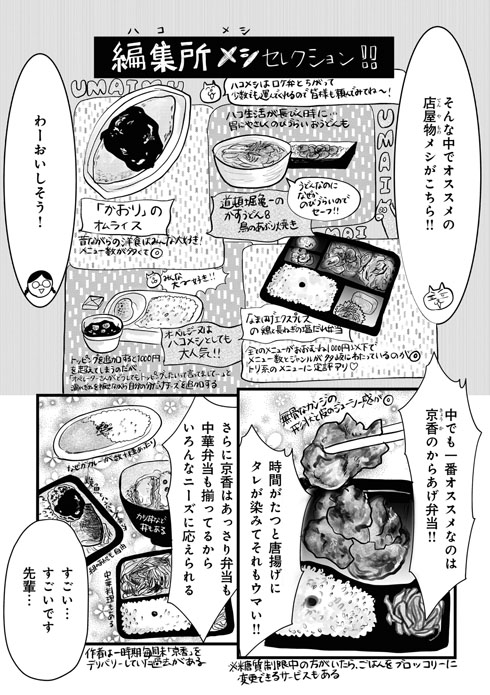 ハコ メシ
編集所メシセレクション!!
そんな中でオススメの
店屋物メシがこちら!!
てんやもの
わーおいしそう!
UMAI
UMAI
ハコメシはロケ弁とちがって
少数でも運んでくれるので皆様も頼んでみてね〜!
ハコ生活が長びく時に…
胃にやさしくのびづらいおうどんも
うどんなのに
なぜか
のびづらいので
セーフ!!
道頓堀亀一の
かすうどん&
鳥のあぶり焼き
「かおり」の
オムライス
昔ながらの洋食はみ〜んな大好き!
メニュー数が多くて◎
みんな
大好き!!
オーベルジーヌは
ハコメシとしても
大人気!!
トッピングを追加すると1000円
を超えてしまうのだが
なま(再)エクスプレス
の鶏と長ねぎの塩だれ弁当
メニュー数とジャンルが多岐にわたっているのが◎
トリ系のメニューに定評アリ♡
中でも一番オススメなのは
京香のからあげ弁当!!
きょうか
時間がたつと唐揚げに
タレが染みてそれもウマい!!
さらに京香はあっさり弁当も
中華弁当も揃ってるから
いろんなニーズに応えられる
カツ丼など
丼もある
中華料理もある
すごい…
すごいです
先輩…
作者は一時期毎週末「京香」を
デリバリーしていた過去がある
※糖質制限中の方がいたら、ごはんをブロッコリーに
変更できるサービスもある